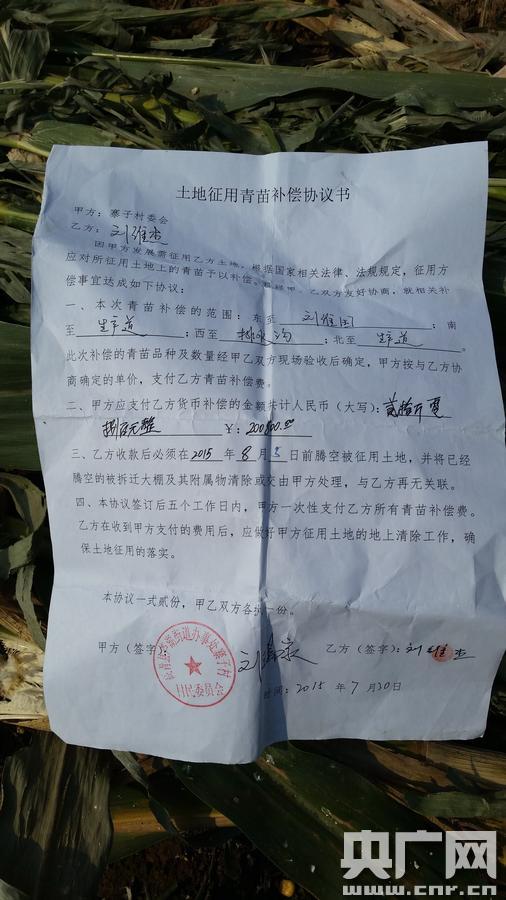 土地征用青苗补偿协议书
甲方：寨子村委会
乙方：刘维杰
因甲方发展需征用乙方土地，根据国家相关法律、法规规定，征用方
应对所征用土地上的青苗予以补偿。现经甲、乙双方友好协商，就相关补
偿事宜达成如下协议：
一、本次青苗补偿的范围：东至 刘维国；南
至 生产道；西至 排水沟；北至 生产道。
此次补偿的青苗品种及数量经甲乙双方现场验收后确定，甲方按与乙方协
商确定的单价，支付乙方青苗补偿费。
二、甲方应支付乙方货币补偿的金额共计人民币（大写）：贰拾万零
捌佰元整 ￥：200800.00
三、乙方收款后必须在 2015 年 8 月 5 日前腾空被征用土地，并将已经
腾空的被拆迁大棚及其附属物清除或交由甲方处理，与乙方再无关联。
四、本协议签订后五个工作日内，甲方一次性支付乙方所有青苗补偿费。
乙方在收到甲方支付的费用后，应做好甲方征用土地的地上清除工作，确
保土地征用的落实。
本协议一式贰份，甲乙双方各执一份。
甲方（签字） 乙方（签字）：刘维杰
街道办事处寨子村
村民委员会
时间：2015 年 7 月 30 日
央广网
www.cnr.cn